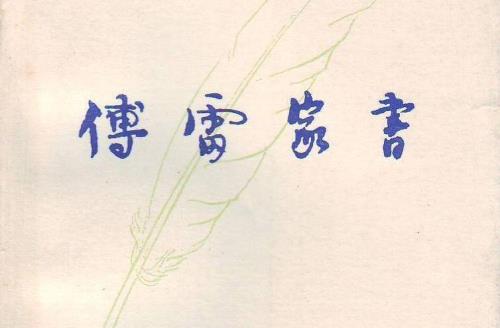 傅雷家書